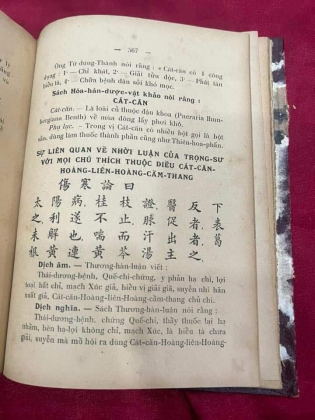 — 567 —
Ông Từ-dụng-Thành nói rằng : « Cát-căn có 4 công
dụng : 1· — Chỉ khát, 2· — Giải tửu độc, 3· — Phát tán
biểu tà, 4· — Chữa bệnh đậu sởi khó mọc.
Sách Hòa-hán-dược-vật khấn nói rằng :
CÁT-CĂN
Cát-căn. — Là loài củ thuộc đậu khoa (Pueraria Bunbergiana
Benth) về mùa đông lấy phơi khô.
Phụ lục. — Trong vị Cát-căn có nhiều bột gọi là bột
sắn, dùng làm thuốc thấm thuốc cũng như Thiên-hoa-phấn.
SỰ LIÊN QUAN VỀ NHỜI LUẬN CỦA TRỌNG-SƯ
VỚI MỌI CHÚ THÍCH THUỘC ĐIỀU CÁT-CĂN-
HOÀNG-LIÊN-HOÀNG-CẦM-THANG
傷寒論曰
太陽病,桂枝證醫反下
之,利遂不止,脉促者,表
未解也,喘而汗出者,葛
根黃連黃芩湯主之,
Dịch âm. — Thương-hàn-luận viết :
Thái-dương-bệnh, Quế-chi-chứng, y phản hạ chi, lợi
toại bất chỉ, mạch Xúc giả, biểu vị giải giả, suyễn nhi hãn
xuất giả, Cát-căn-Hoàng-liên-Hoàng-cầm-thang chủ chi.
Dịch nghĩa. — Sách Thương-hàn-luận nói rằng :
Thái-dương-bệnh, chứng Quế-chi, thầy thuốc lại hạ
nhầm, bèn hạ-lợi không chỉ, mạch Xúc, là biểu tà chưa
giải, suyễn mà mồ hôi ra dùng Cát-căn-Hoàng-liên-Hoàng-